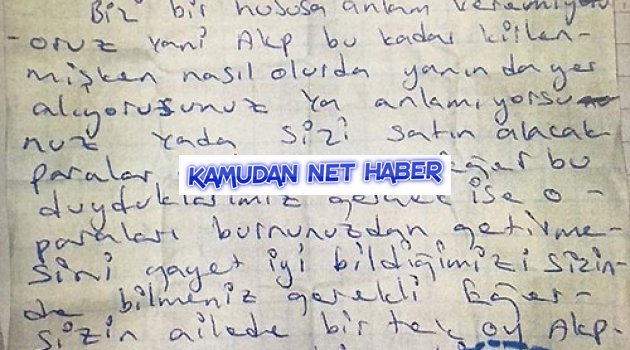 Biz bir hususa anlam veremiyo
-oruz yani Akp bu kadar kirlen-
mişken nasıl olurda yanında yer
alıyorusunuz ya anlamıyorsu
nuz yada sizi satın alacak
paralar KAMUDAN NET HABER Eğer bu
duyduklarımız gerçek ise o-
paraları burnunuzdan getirme-
sini gayet iyi bildiğimizi sizin-
de bilmeniz gerekli Eğer-
sizin ailede bir tek oy Akp-